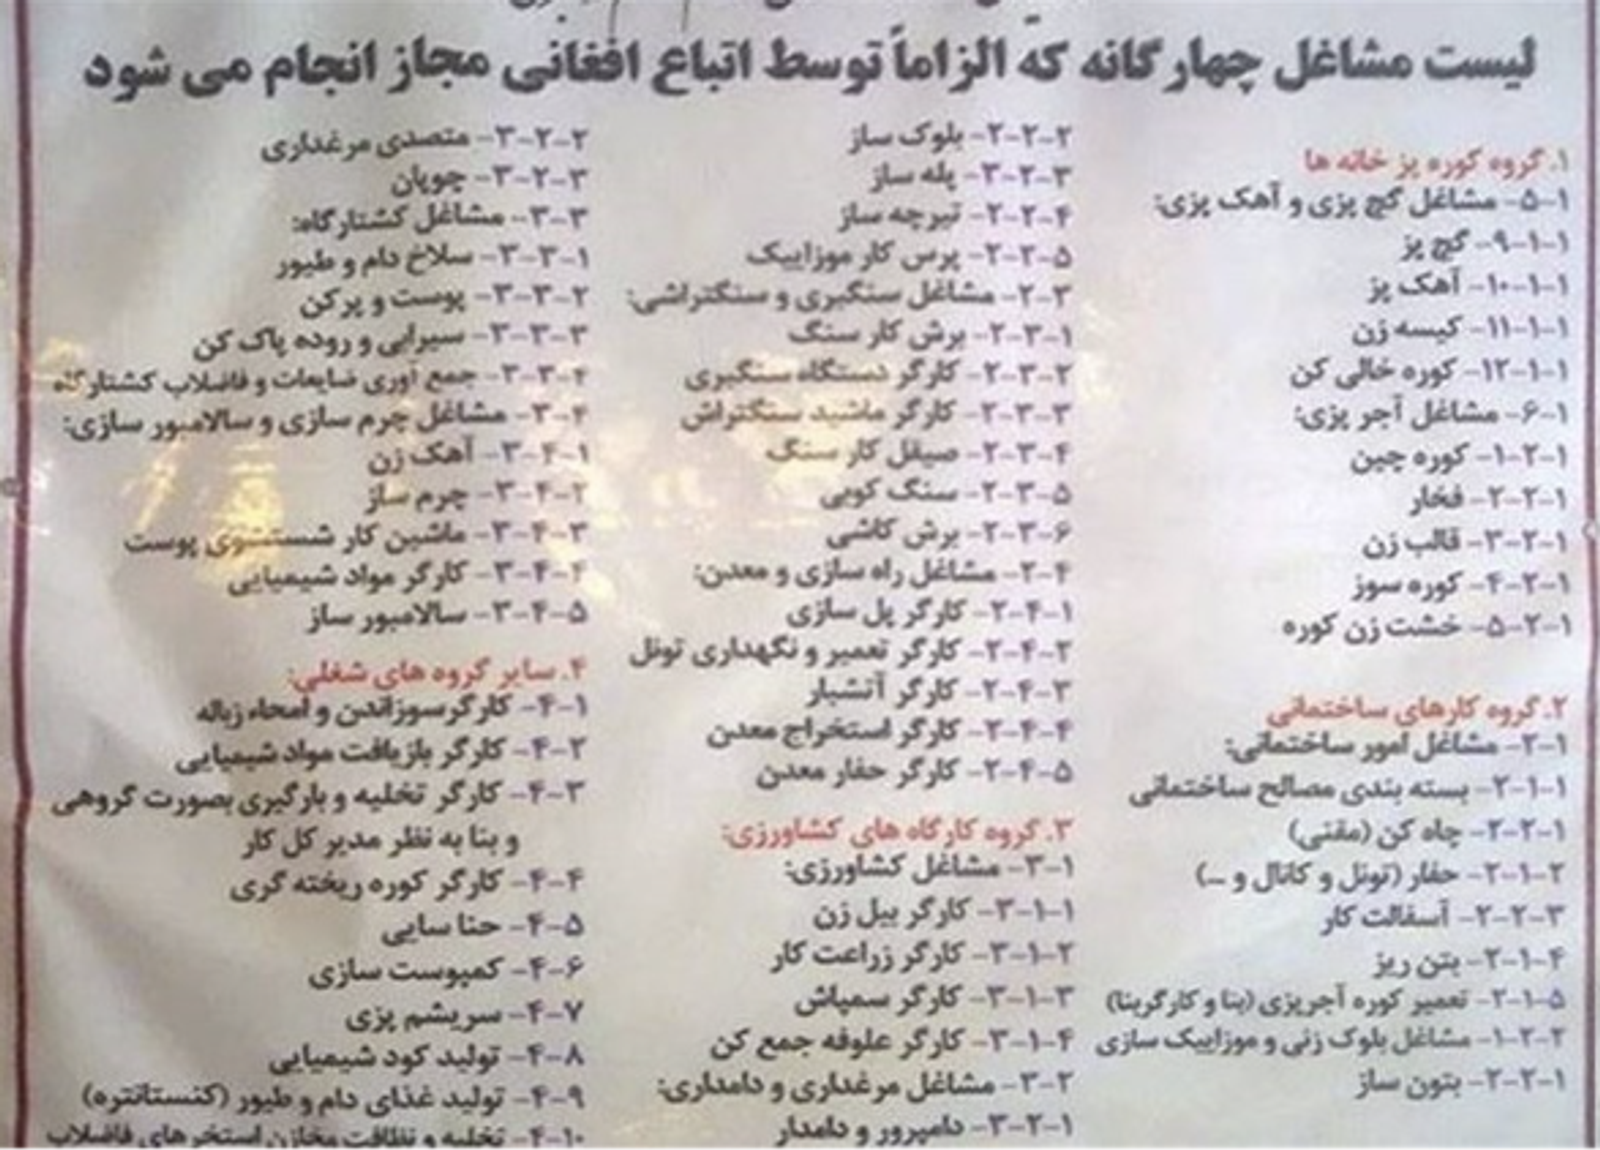 لیست مشاغل چهارگانه که الزاماً توسط اتباع افغانی مجاز انجام می شود
۱. گروه کوره پز خانه ها
۱-۵- مشاغل گچ پزی و آهک پزی:
۱-۱-۹- گچ پز
۱-۱-۱۰- آهک پز
۱-۱-۱۱- کیسه زن
۱-۱-۱۲- کوره خالی کن
۱-۶- مشاغل آجر پزی:
۱-۲-۱- کوره چین
۱-۲-۲- فخار
۱-۲-۳- قالب زن
۱-۲-۴- کوره سوز
۱-۲-۵- خشت زن کوره
۲. گروه کارهای ساختمانی
۲-۱- مشاغل امور ساختمانی:
۲-۱-۱- بسته بندی مصالح ساختمانی
۲-۲-۱- چاه کن (مقنی)
۲-۱-۲- حفار (تونل و کانال و ...)
۲-۲-۳- آسفالت کار
۲-۱-۴- بتن ریز
۲-۱-۵- تعمیر کوره آجرپزی (بنا و کارگربنا)
۱-۲-۲- مشاغل بلوک زنی و موزاییک سازی
۲-۲-۱- بتون ساز
۲-۲-۲- بلوک ساز
۳-۲-۳- پله ساز
۲-۲-۴- تیرچه ساز
۲-۲-۵- پرس کار موزاییک
۲-۳- مشاغل سنگبری و سنگتراشی:
۲-۳-۱- برش کار سنگ
۲-۳-۲- کارگر دستگاه سنگبری
۲-۳-۳- کارگر ماشید سنگتراش
۲-۳-۴- صیقل کار سنگ
۲-۳-۵- سنگ کوبی
۲-۳-۶- برش کاشی
۲-۴- مشاغل راه سازی و معدن:
۲-۴-۱- کارگر پل سازی
۲-۴-۲- کارگر تعمیر و نگهداری تونل
۲-۴-۳- کارگر آتشبار
۲-۴-۴- کارگر استخراج معدن
۲-۴-۵- کارگر حفار معدن
۳. گروه کارگاه های کشاورزی:
۳-۱- مشاغل کشاورزی:
۳-۱-۱- کارگر بیل زن
۳-۱-۲- کارگر زراعت کار
۳-۱-۳- کارگر سمپاش
۳-۱-۴- کارگر علوفه جمع کن
۳-۲- مشاغل مرغداری و دامداری:
۳-۲-۱- دامپرور و دامدار
۳-۲-۲- متصدی مرغداری
۳-۲-۳- چوپان
۳-۳- مشاغل کشتارگاه:
۳-۳-۱- سلاخ دام و طیور
۳-۳-۲- پوست و پرکن
۳-۳-۳- سیرابی و روده پاک کن
۳-۳-۴- جمع آوری ضایعات و فاضلاب کشتارگاه
۳-۴- مشاغل چرم سازی و سالامبور سازی:
۳-۴-۱- آهک زن
۳-۴-۲- چرم ساز
۳-۴-۳- ماشین کار شستشوی پوست
۳-۴-۴- کارگر مواد شیمیایی
۳-۴-۵- سالامبور ساز
۴. سایر گروه های شغلی:
۴-۱- کارگرسوزاندن و امحاء زباله
۴-۲- کارگر بازیافت مواد شیمیایی
۴-۳- کارگر تخلیه و بارگیری بصورت گروهی
و بنا به نظر مدیر کل کار
۴-۴- کارگر کوره ریخته گری
۴-۵- حنا سایی
۴-۶- کمپوست سازی
۴-۷- سریشم پزی
۴-۸- تولید کود شیمیایی
۴-۹- تولید غذای دام و طیور (کنستانتره)
۴-۱۰- تخلیه و نظافت مخازن استخرهای فاضلاب